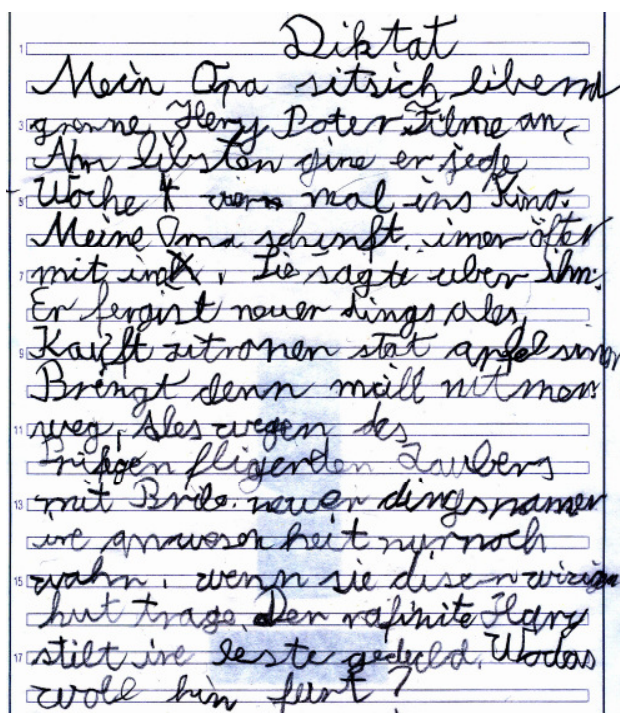 Diktat
Mein Opa sitsich libend
grenne Hery Poter Filme an,
Ahm libsten gine er jede
Woche 4 mal ins Kino.
Meine Oma schinft, imer öfter
mit . Sie sagte uber ihm:
Er fergist neuer dings ales,
Kauft zitronen stat apfelsinen
Bringt denn müll nit
weg, Ales wegen des
fligenden Zaubers
mit Brile. neuer dings
ire anwesenheit nur noch
wahn, wenn sie disen
hut trage. Den rafinite Hary
stilt ire leste gedeld. Wodas
woll hin feurt?